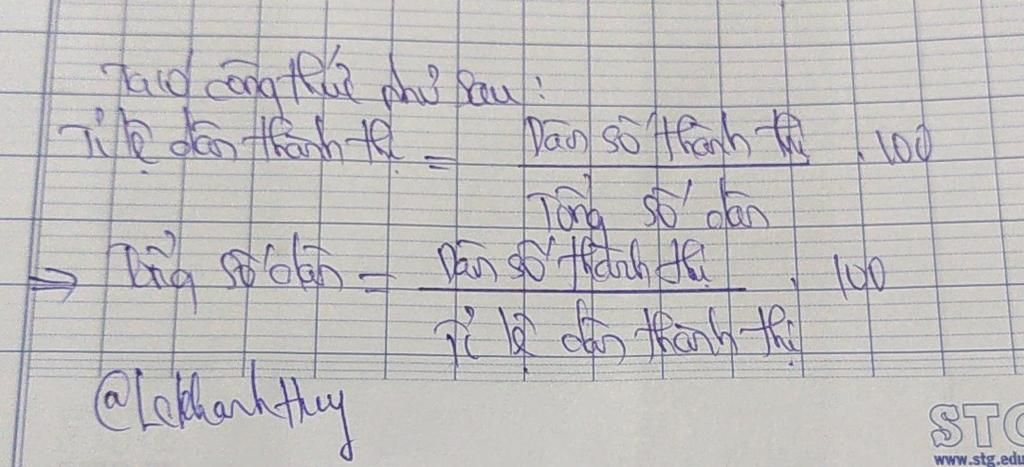 Ta có công thức như sau:
Tỉ lệ dân thành thị = Dân số thành thị / Tổng số dân . 100
⇒ Tổng số dân = Dân số thành thị / Tỉ lệ dân thành thị . 100
@Lekhanhthuy
STG
www.stg.edu